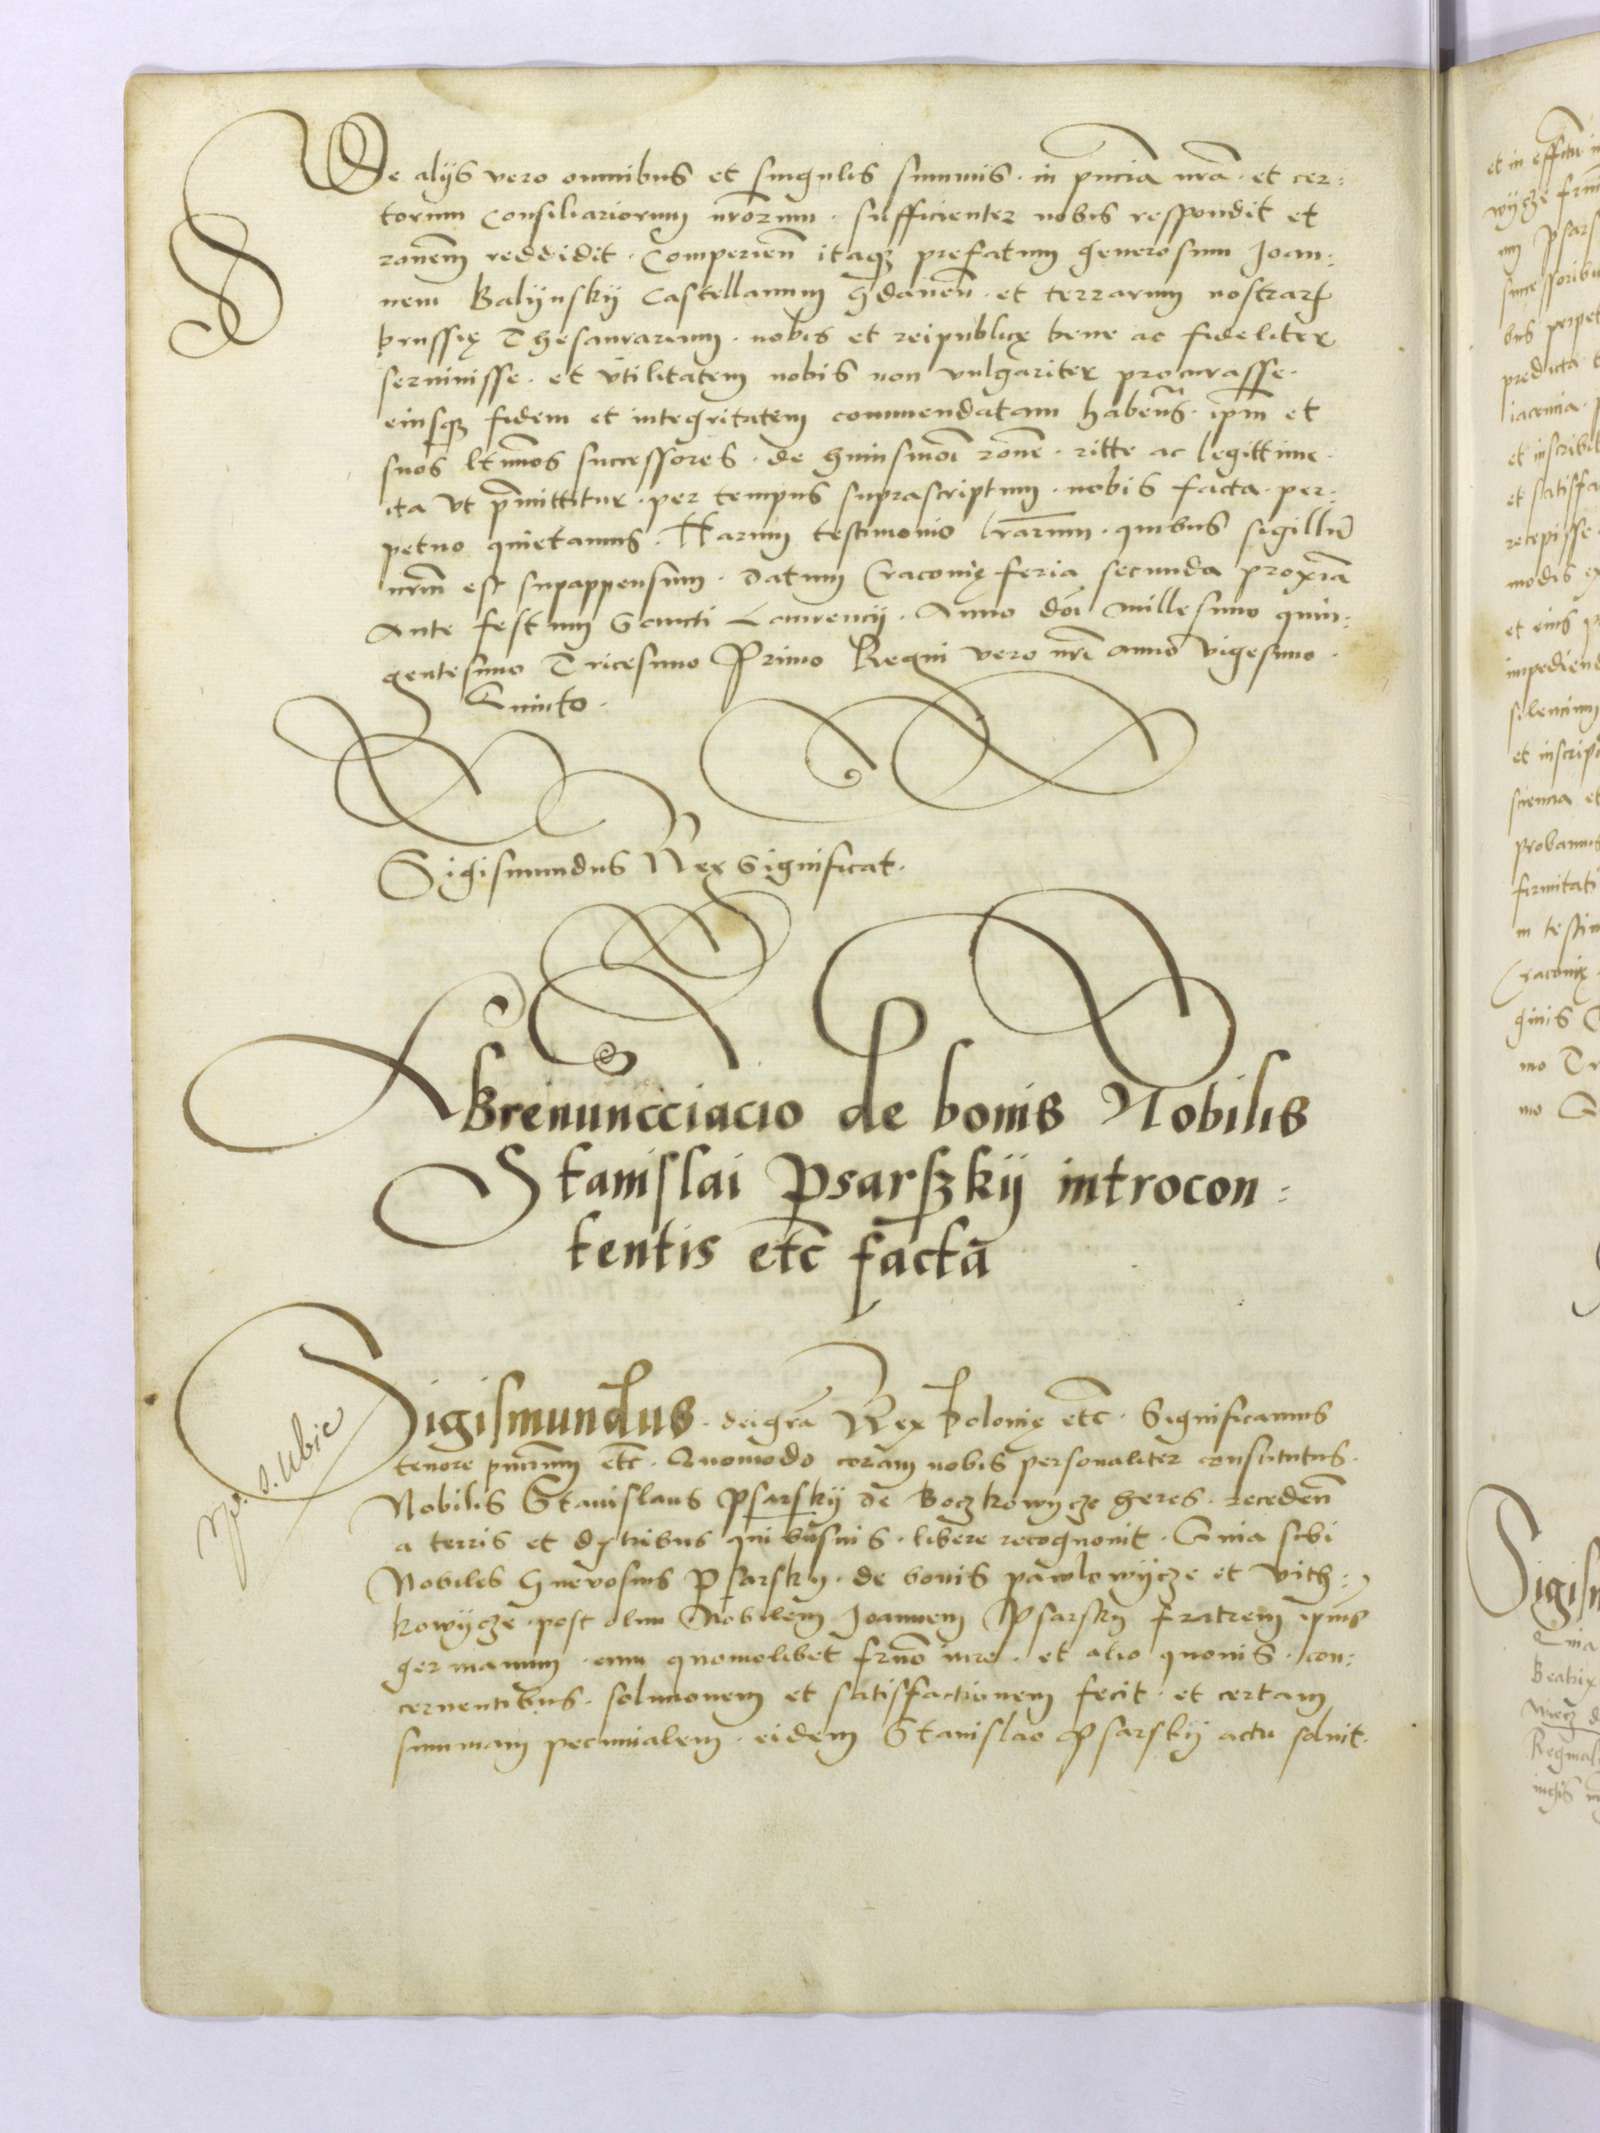 De alijs vero omnibus et singulis summis · in pnciā nrā · et cer:
torum Consiliariorum nrorum · sufficienter nobis respondit et
ronem reddidit · Comperien itaq prefatum generosum Joan:
nem Balijnskij Castellanum Gdanen · et terrarum nostrarum
prussię Thesaurarium · nobis et reipublicę bene ac fideliter
servivisse · et vtilitatem nobis non vulgariter procurasse ·
eiusq fidem et integritatem commendatam habens · ipm et
suos ltimos successores · de huiusmoi rone · ritte ac legittime ·
ita vt pmittitur · per tempus suprascriptum · nobis facta · per:
petuo quietamus · Harum testimonio lrarum · quibus sigillū
nrm est supappensum · Datum Cracovię feria secunda proxia
Ante festum Sancti Laurencij · Anno doi Millesimo quin:
gentesimo Tricesimo Primo Regni vero nri anno vigesimo ·
Quinto ·
Sigismundus Rex Significat ·
Abrenuncciacio de bonis Nobilis
Stanislai Psarszkij introcon:
tentis etc facta
Sigismundus · dei gra Rex Polonię etc · Significamus
tenore pncium etc · Quomodo coram nobis personaliter constitutus ·
Nobilis Stanislaus Psarskij de Boczkowycze heres · receden
a terris et distribus quibusuis · libere recognovit · Quia sibi
Nobiles Gnevosius Psarskij · de bonis pawlowycze et vith:
kowycze · post olim Nobilem Joannem Psarskij fratrem ipius
germanum · eum quomolibet iure · et alio quovis · con:
cernentibus · solucionem et satisfactionem fecit · et certam
summam pecunialem · eidem Stanislao Psarskij actu solvit ·
et in effctu
wycze
Psars
successoribus
predicta
et inscribit
et satisfa
recepisse
modis ex
et eius
silencium
et inscrip
probamus
firmitati
in testim
Cracovię
Sigism
Quia
Beatrix